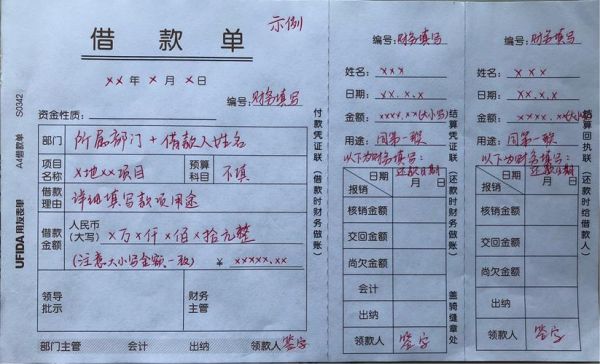 示例
借款单
xx年x月x日
编号:财务填写
资金性质:
部门 所属部门+借款人姓名
项目名称 x地xx项目 预算科目 不填
借款理由 详细填写款项用途
借款金额 人民币(大写) x万x仟x佰x拾元整
(注意大小写金额一致) ¥ xxxxx.xx
领导批示 财务主管
部门主管 会计 出纳 领款人 签字
付款凭证联(借款时财务做账)
UFIDA 用友表单 A4借款单 S0342
编号:财务填写
姓名:xxx
日期:xx.x.x
金额:xxxx.xx(大小写)
用途:同第一联
以下为财务填写:
还款日期
日期 月 日
报销
核销金额
交回金额
尚欠金额
会计
出纳
领款人 签字
结算凭证联(还款时财务做账)
盖骑缝章处
编号:财务填写
姓名:xxx
日期:xx.x.x
金额:xxxx.xx(大小写)
用途:同第一联
以下为财务填写:
还款日期
日期 月 日
报销
核销金额
交回金额
尚欠金额
出纳
领款人 签字
结算回执联(还款时给借款人)